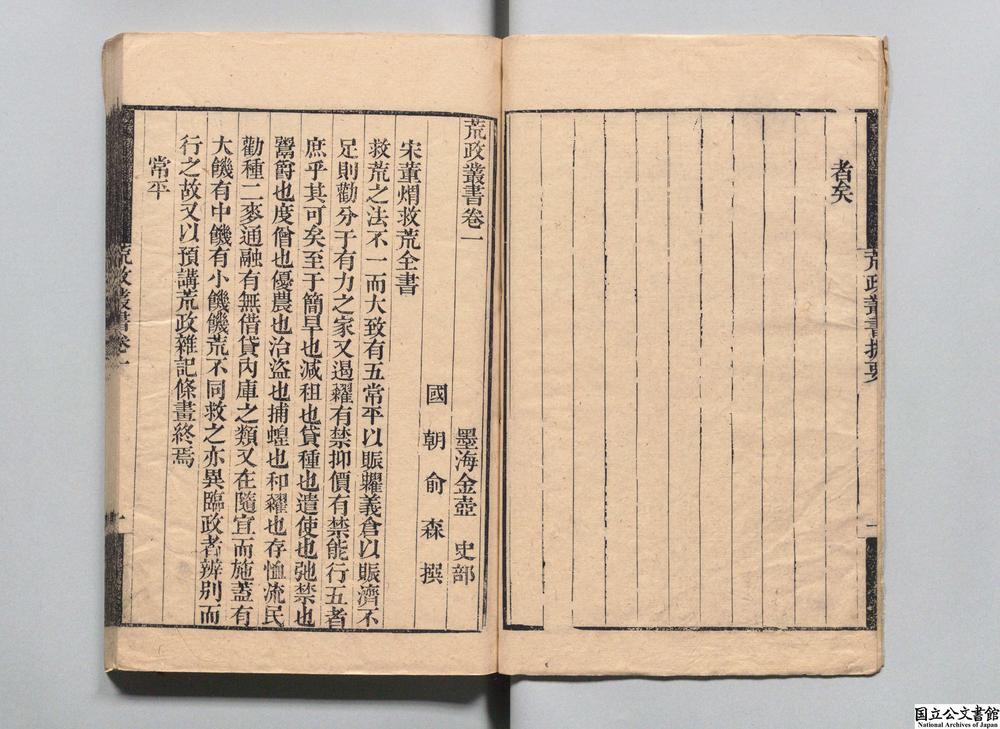 荒政叢書提要
一
者矣
荒政叢書卷一
墨海金壺　史部
國朝俞森撰
宋董煟救荒全書
救荒之法不一而大致有五常平以賑糶義倉以賑濟不
足則勸分于有力之家又遏糴有禁抑價有禁能行五者
庶乎其可矣至于簡旱也減租也貸種也遣使也弛禁也
鬻爵也度僧也優農也治盜也捕蝗也和糴也存恤流民
勸種二麥通融有無借貸內庫之類又在隨宜而施蓋有
大饑有中饑有小饑饑荒不同救之亦異臨政者辨別而
行之故又以預講荒政雜記條畫終焉
常平
荒政叢書卷一
一
国立公文書館
National Archives of Japan